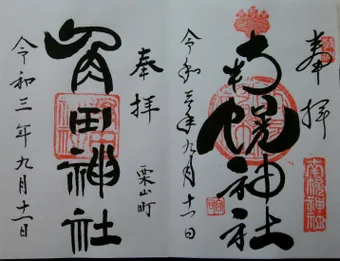 奉拝
南幌神社
南幌神社
令和三年九月十一日
奉拝
栗山町
角田神社
令和三年九月十一日